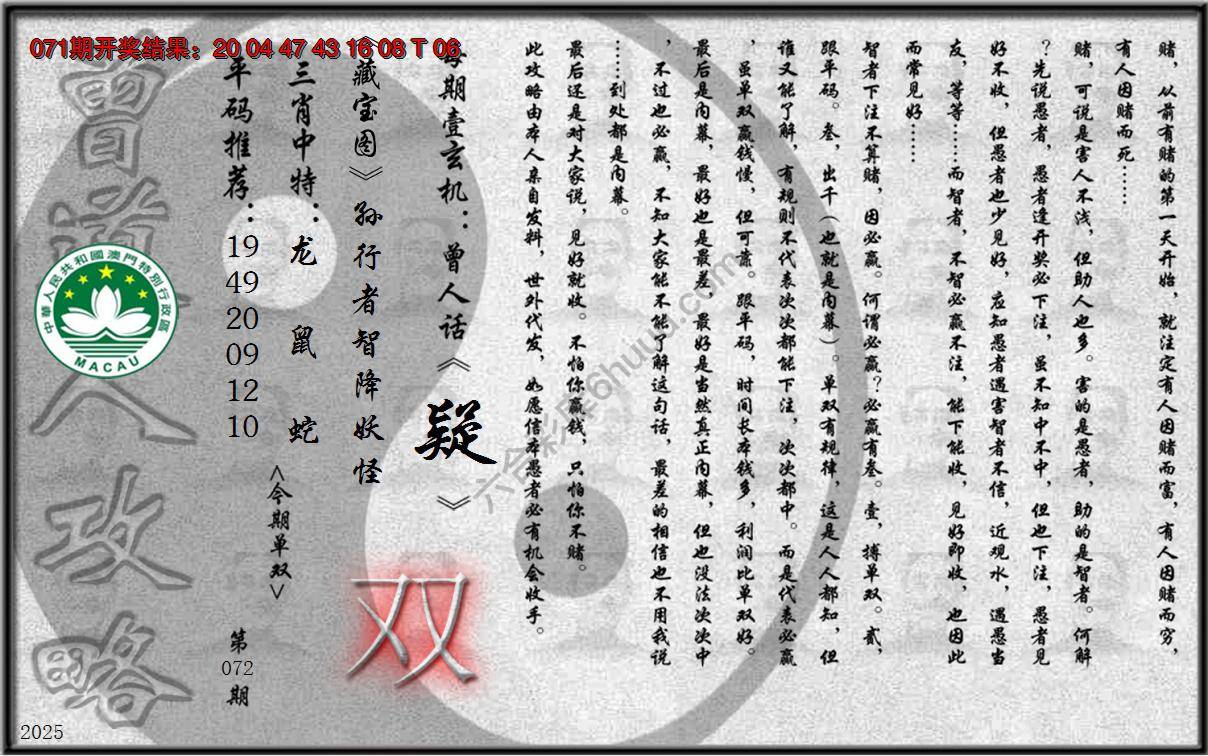 071期开奖结果：20 04 47 43 16 08 T 06
赌，从前有赌的第一天开始，就注定有人因赌而富，有人因赌而穷，
有人因赌而死……
赌，可说是害人不浅，但助人也多。害的是愚者，助的是智者。何解
？先说愚者，愚者逢开奖必下注，虽不知中不中，但也下注，愚者见
好不收，但愚者也少见好，应知愚者遇害智者不信，近观水，遇愚当
友，等等……而智者，不智必赢不注，能下能收，见好即收，也因此
而常见好……
智者下注不算赌，因必赢。何谓必赢？必赢有叁。壹，搏单双。贰，
跟平码。叁，出千（也就是内幕）。单双有规律，这是人人都知，但
谁又能了解，有规则不代表次次都能下注，次次都中。而是代表必赢
，虽单双赢钱慢，但可靠。跟平码，时间长本钱多，利润比单双好。
最后是内幕，最好也是最差，最好是当然真正内幕，但也没法次次中
，不过也必赢，不知大家能不能了解这句话，最差的相信也不用我说
……到处都是内幕。
最后还是对大家说，见好就收。不怕你赢钱，只怕你不赌。
此攻略由本人亲自发料，世外代发，如愿信本愚者必有机会收手。
每期壹玄机：曾人话《疑》
《藏宝图》孙行者智降妖怪
双
三肖中特：龙 鼠 蛇
<今期单双>
平码推荐：19 49 20 09 12 10
第072期
曾道人攻略
中華人民共和國澳門特別行政區
MACAU
六合彩库6huuu.com
2025